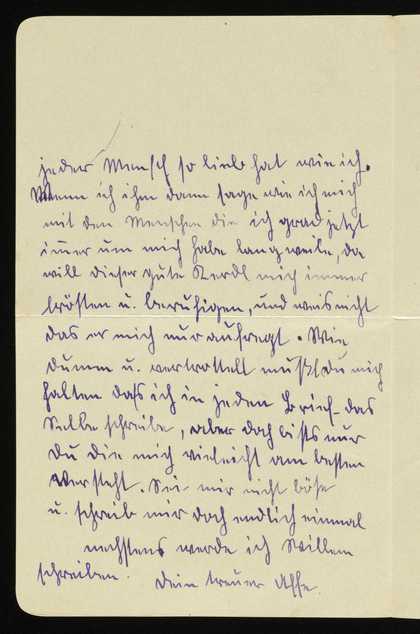 jeder Mensch so lieb hat wie ich.
Wenn ich ihm dann sage wie ich mich
mit den Menschen die ich grad jetzt
im̅er um mich habe langweile, da
will dieser gute Kerdl mich immer
trösten u. beruhigen, und weis nicht
das er mich nur aufregt. Wie
dumm u. vertrottelt mußt du mich
halten daß ich in jeden Brief das
Selbe schreibe, aber doch bists nur
Du die mich vieleicht am besten
versteht. Sei mir nicht böse
u. schreib mir doch endlich einmal
nechstens werde ich Willem
schreiben. Dein treuer Affe.